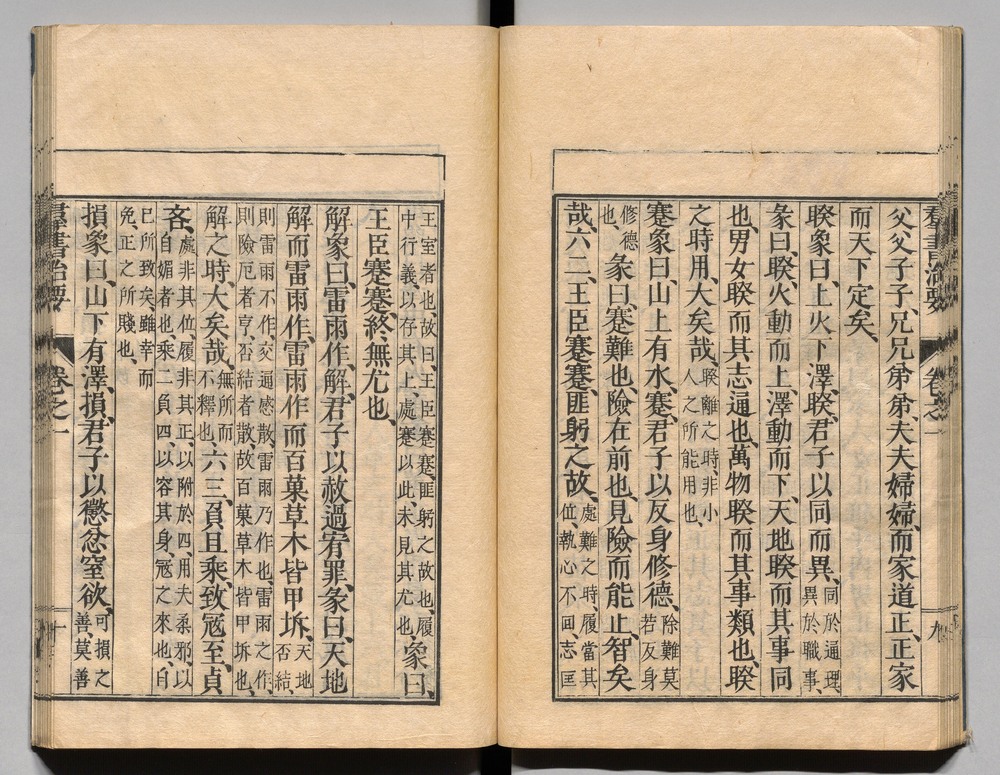 群書治要　卷之一　九
父父子子、兄兄弟弟、夫夫婦婦、而家道正、正家
而天下定矣、
睽象曰、上火下澤、睽、君子以同而異、同於通理、異於職事、
彖曰、睽、火動而上、澤動而下、天地睽而其事同
也、男女睽而其志通也、萬物睽而其事類也、睽
之時用、大矣哉、睽離之時、非小人之所能用也、
蹇象曰、山上有水、蹇、君子以反身修德、除難莫若反身
修德也、彖曰、蹇難也、險在前也、見險而能止、智矣
哉、六二、王臣蹇蹇、匪躬之故、處難之時、履當其位、執心不回、志匡
王室者也、故曰、王臣蹇蹇、匪躬之故也、履中行義、以存其上、處蹇以此、未見其尤也、象曰、
王臣蹇蹇、終無尤也、
解象曰、雷雨作、解、君子以赦過宥罪、彖曰、天地
解而雷雨作、雷雨作而百菓草木皆甲坼、天地否結、
則雷雨不作、交通感散、雷雨乃作也、雷雨之作、則險厄者亨、否結者散、故百菓草木皆甲坼也、
解之時、大矣哉、無所而不釋也、六三、負且乘、致寇至、貞
吝、處非其位、履非其正、以附於四、用夫柔邪、以自媚者也、乘二負四、以容其身、寇之來也、自
己所致矣、雖幸而免、正之所賤也、
損象曰、山下有澤、損、君子以懲忿窒欲、可損之善、莫善
群書治要　卷之一　十